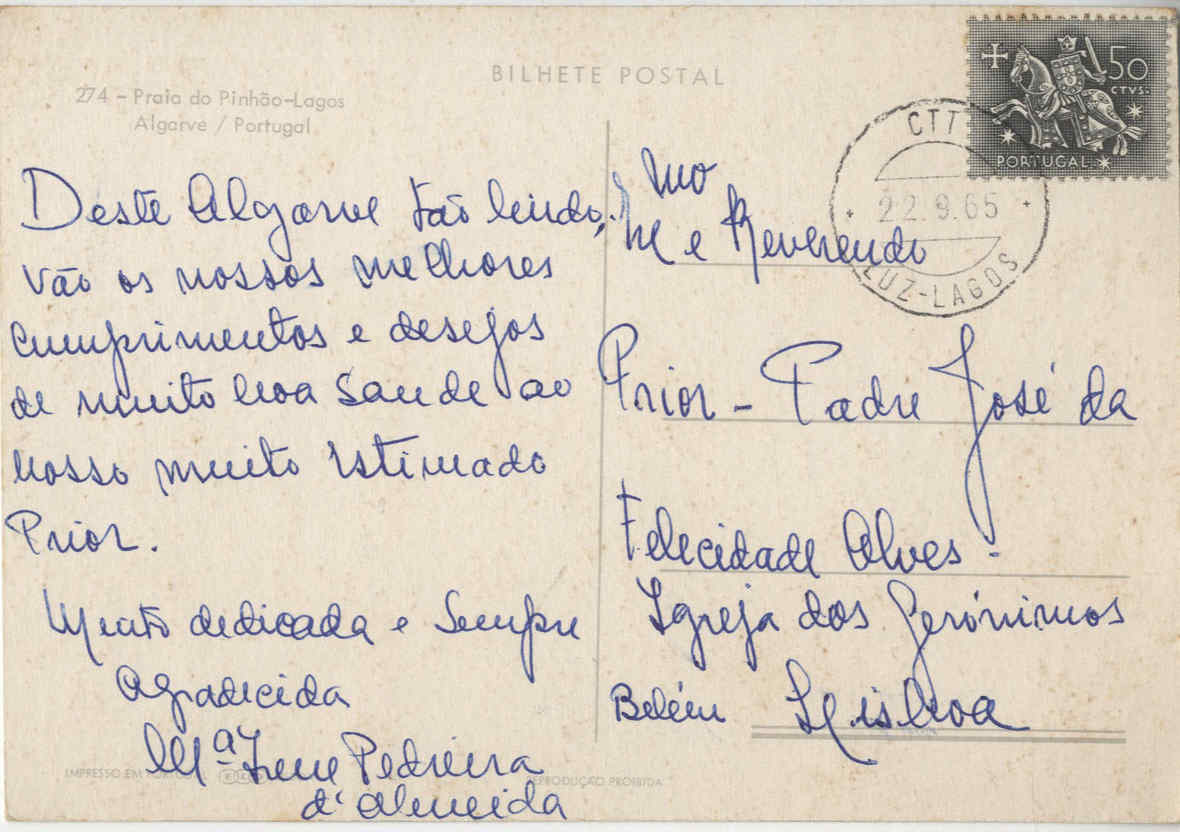 BILHETE POSTAL
274 - Praia do Pinhão-Lagos
Algarve / Portugal
50
CTVS.
PORTUGAL
CTT
22.9.65
LUZ-LAGOS
Deste Algarve tão lindo,
vão os nossos melhores
cumprimentos e desejos
de muito boa saude ao
nosso muito estimado
Prior.
Muito dedicada e sempre
agradecida
Mª Irene Pedreira
d'Almeida
mo
e Reverendo
Prior - Padre José da
Felecidade Alves.
Igreja dos Jerónimos
Belém Lisboa
IMPRESSO EM PORTUGAL
REPRODUÇÃO PROIBIDA